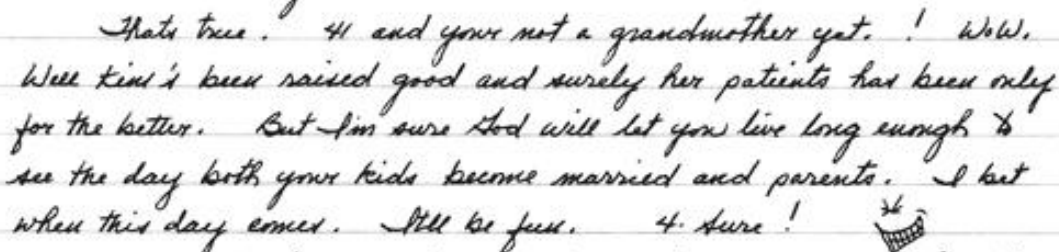 Thats true. 41 and your not a grandmother yet. ! WoW.
Well Kim's been raised good and surely her patients has been only
for the better. But I'm sure God will let you live long enough to
see the day both your kids become married and parents. I bet
when this day comes. It'll be fun. 4. Sure!